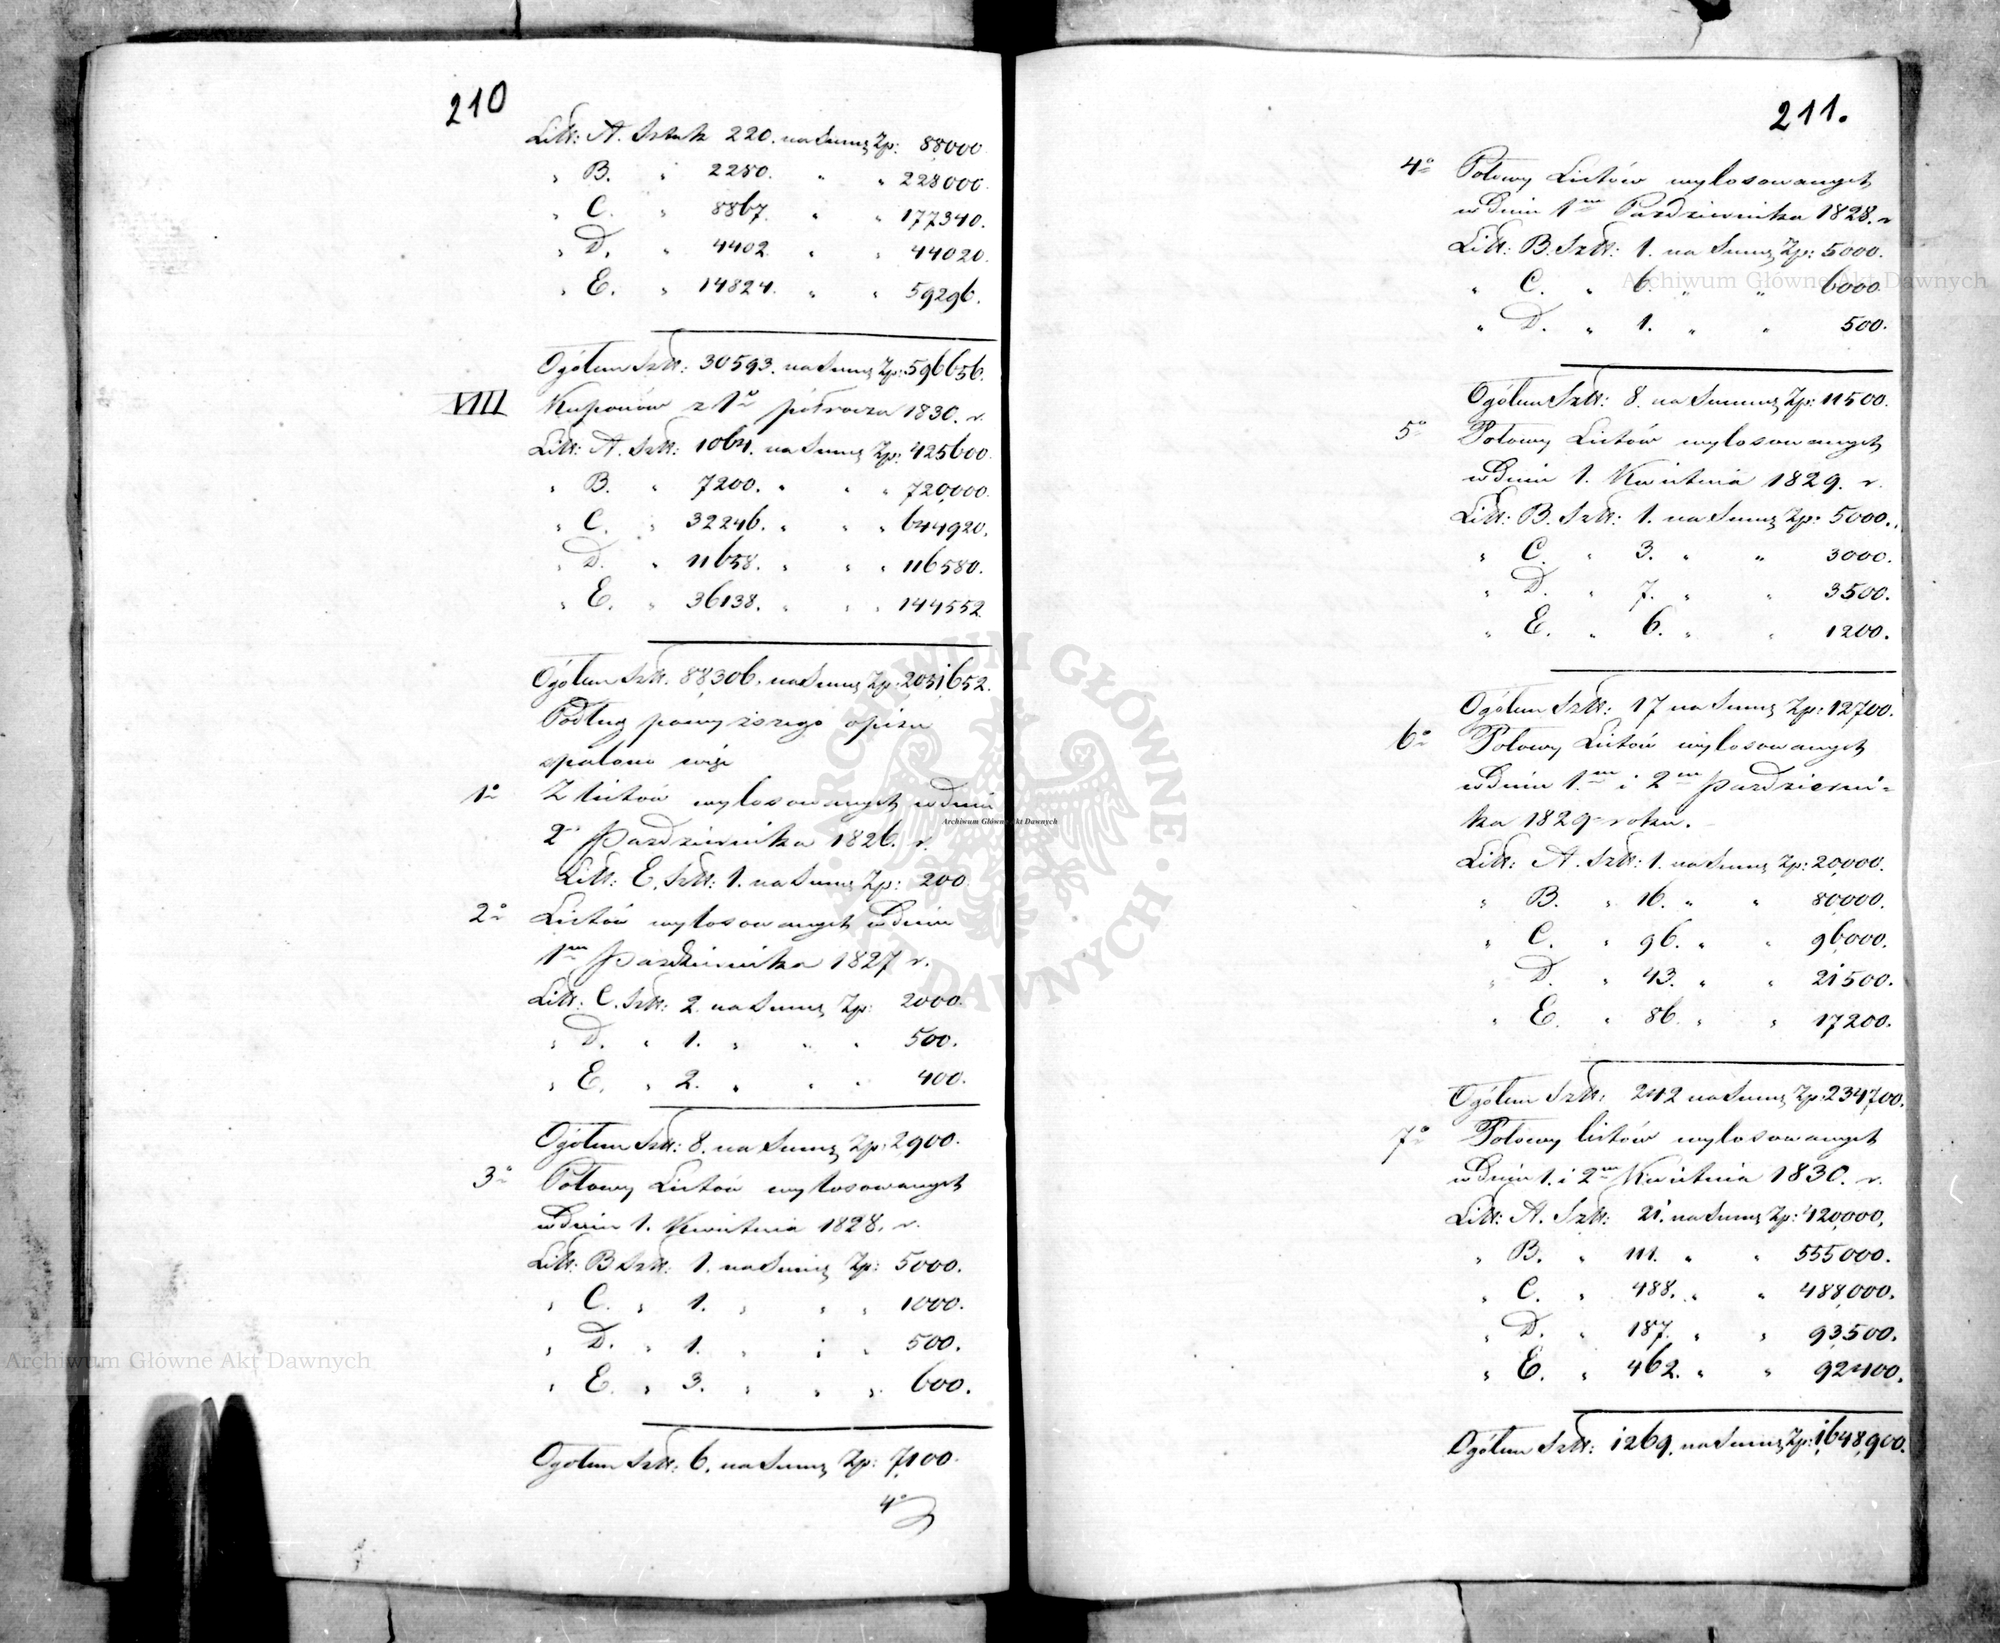 210
Litt: A. Sztuk 220. na Summę Zp: 88000.
" B. " 2280. " " 228000.
" C. " 8867. " " 177340.
" D. " 4402. " " 44020.
" E. " 14824. " " 59296.
Ogółem Sztk: 30593. na Summę Zp: 596656.
VIII Kuponów z 1º półrocza 1830. r.
Litt: A. Sztk: 1064. na Summę Zp: 425600.
" B. " 7200. " " 720,000.
" C. " 32246. " " 644920.
" D. " 11658. " " 116580.
" E. " 36138. " " 144552.
Ogółem Sztk. 88,306. na Summę Zp: 2051,652.
Podług powyższego opisu
spalono więc
1º Z listów wylosowanych w dniu
2º Pazdziernika 1826. r.
Litt: E. Sztk: 1. na Summę Zp: 200.
2º Listów wylosowanych w dniu
1m Pazdziernika 1827 r.
Litt: C. Sztk: 2. na Summę Zp: 2000.
" D. " 1. " " 500.
" E. " 2. " " 400.
Ogółem Sztk: 8. na Summę Zp: 2900.
3º Połowy Listów wylosowanych
w dniu 1. Kwietnia 1828. r.
Litt: B Sztk: 1. na Summę Zp: 5000.
" C. " 1. " " " 1000.
" D. " 1. " " " 500.
" E. " 3. " " " 600.
Ogołem Sztk: 6. na Summę Zp: 7,100.
4º
211.
4º Połowy Listów wylosowanych
w dniu 1m Pazdziernika 1828. r
Litt: B. Sztk: 1. na Summę Zp: 5000.
" C. " 6. " " 6000.
" D. " 1. " " 500.
Ogółem Sztk: 8. na Summę Zp: 11500.
5º Połowy Listów wylosowanych
w dniu 1. Kwietnia 1829. r.
Litt: B. Sztk: 1. na Summę Zp: 5000.
" C. " 3. " " 3000.
" D. " 7. " " 3500.
" E. " 6. " " 1200.
Ogółem Sztk: 17 na Summę Zp: 12,700.
6º Połowy Listów wylosowanych
w dniu 1.m i 2m Pazdzierni-
ka 1829 roku.
Litt: A. Sztk: 1. na Summę Zp: 20,000.
" B. " 16. " " 80,000.
" C. " 96. " " 96,000.
" D. " 43. " " 21500.
" E. " 86. " " 17200.
Ogółem Sztk: 242 na Summę Zp: 234,700.
7º Połowy listów wylosowanych
w dniu 1. i 2m Kwietnia 1830. r.
Litt: A. Sztk: 21. na Summę Zp: 420,000.
" B. " 111. " " 555000.
" C. " 488. " " 488,000.
" D. " 187. " " 93,500.
" E. " 462. " " 92400.
Ogółem Sztk: 1269. na Summę Zp: 1,648,900.
Archiwum Główne Akt Dawnych
Archiwum Główne Akt Dawnych
Archiwum Główne Akt Dawnych
ARCHIWUM GŁÓWNE AKT DAWNYCH